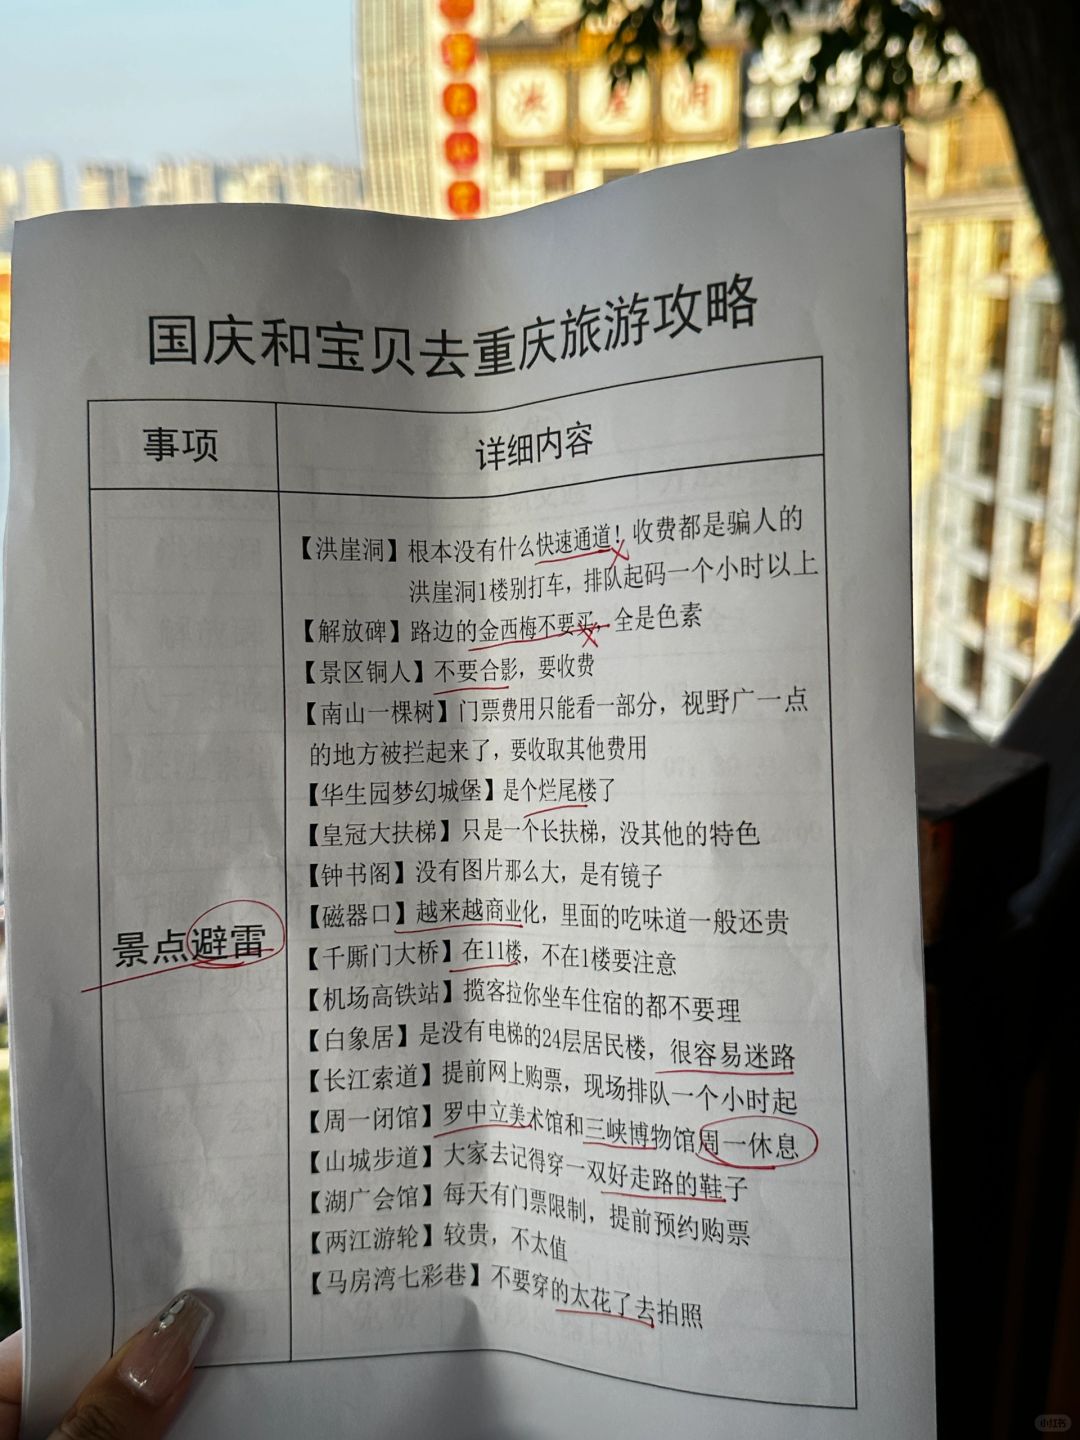 洪崖洞
国庆和宝贝去重庆旅游攻略
事项
详细内容
景点避雷
【洪崖洞】根本没有什么快速通道！收费都是骗人的
洪崖洞1楼别打车，排队起码一个小时以上
【解放碑】路边的金西梅不要买，全是色素
【景区铜人】不要合影，要收费
【南山一棵树】门票费用只能看一部分，视野广一点
的地方被拦起来了，要收取其他费用
【华生园梦幻城堡】是个烂尾楼了
【皇冠大扶梯】只是一个长扶梯，没其他的特色
【钟书阁】没有图片那么大，是有镜子
【磁器口】越来越商业化，里面的吃味道一般还贵
【千厮门大桥】在11楼，不在1楼要注意
【机场高铁站】揽客拉你坐车住宿的都不要理
【白象居】是没有电梯的24层居民楼，很容易迷路
【长江索道】提前网上购票，现场排队一个小时起
【周一闭馆】罗中立美术馆和三峡博物馆周一休息
【山城步道】大家去记得穿一双好走路的鞋子
【湖广会馆】每天有门票限制，提前预约购票
【两江游轮】较贵，不太值
【马房湾七彩巷】不要穿的太花了去拍照
小红书